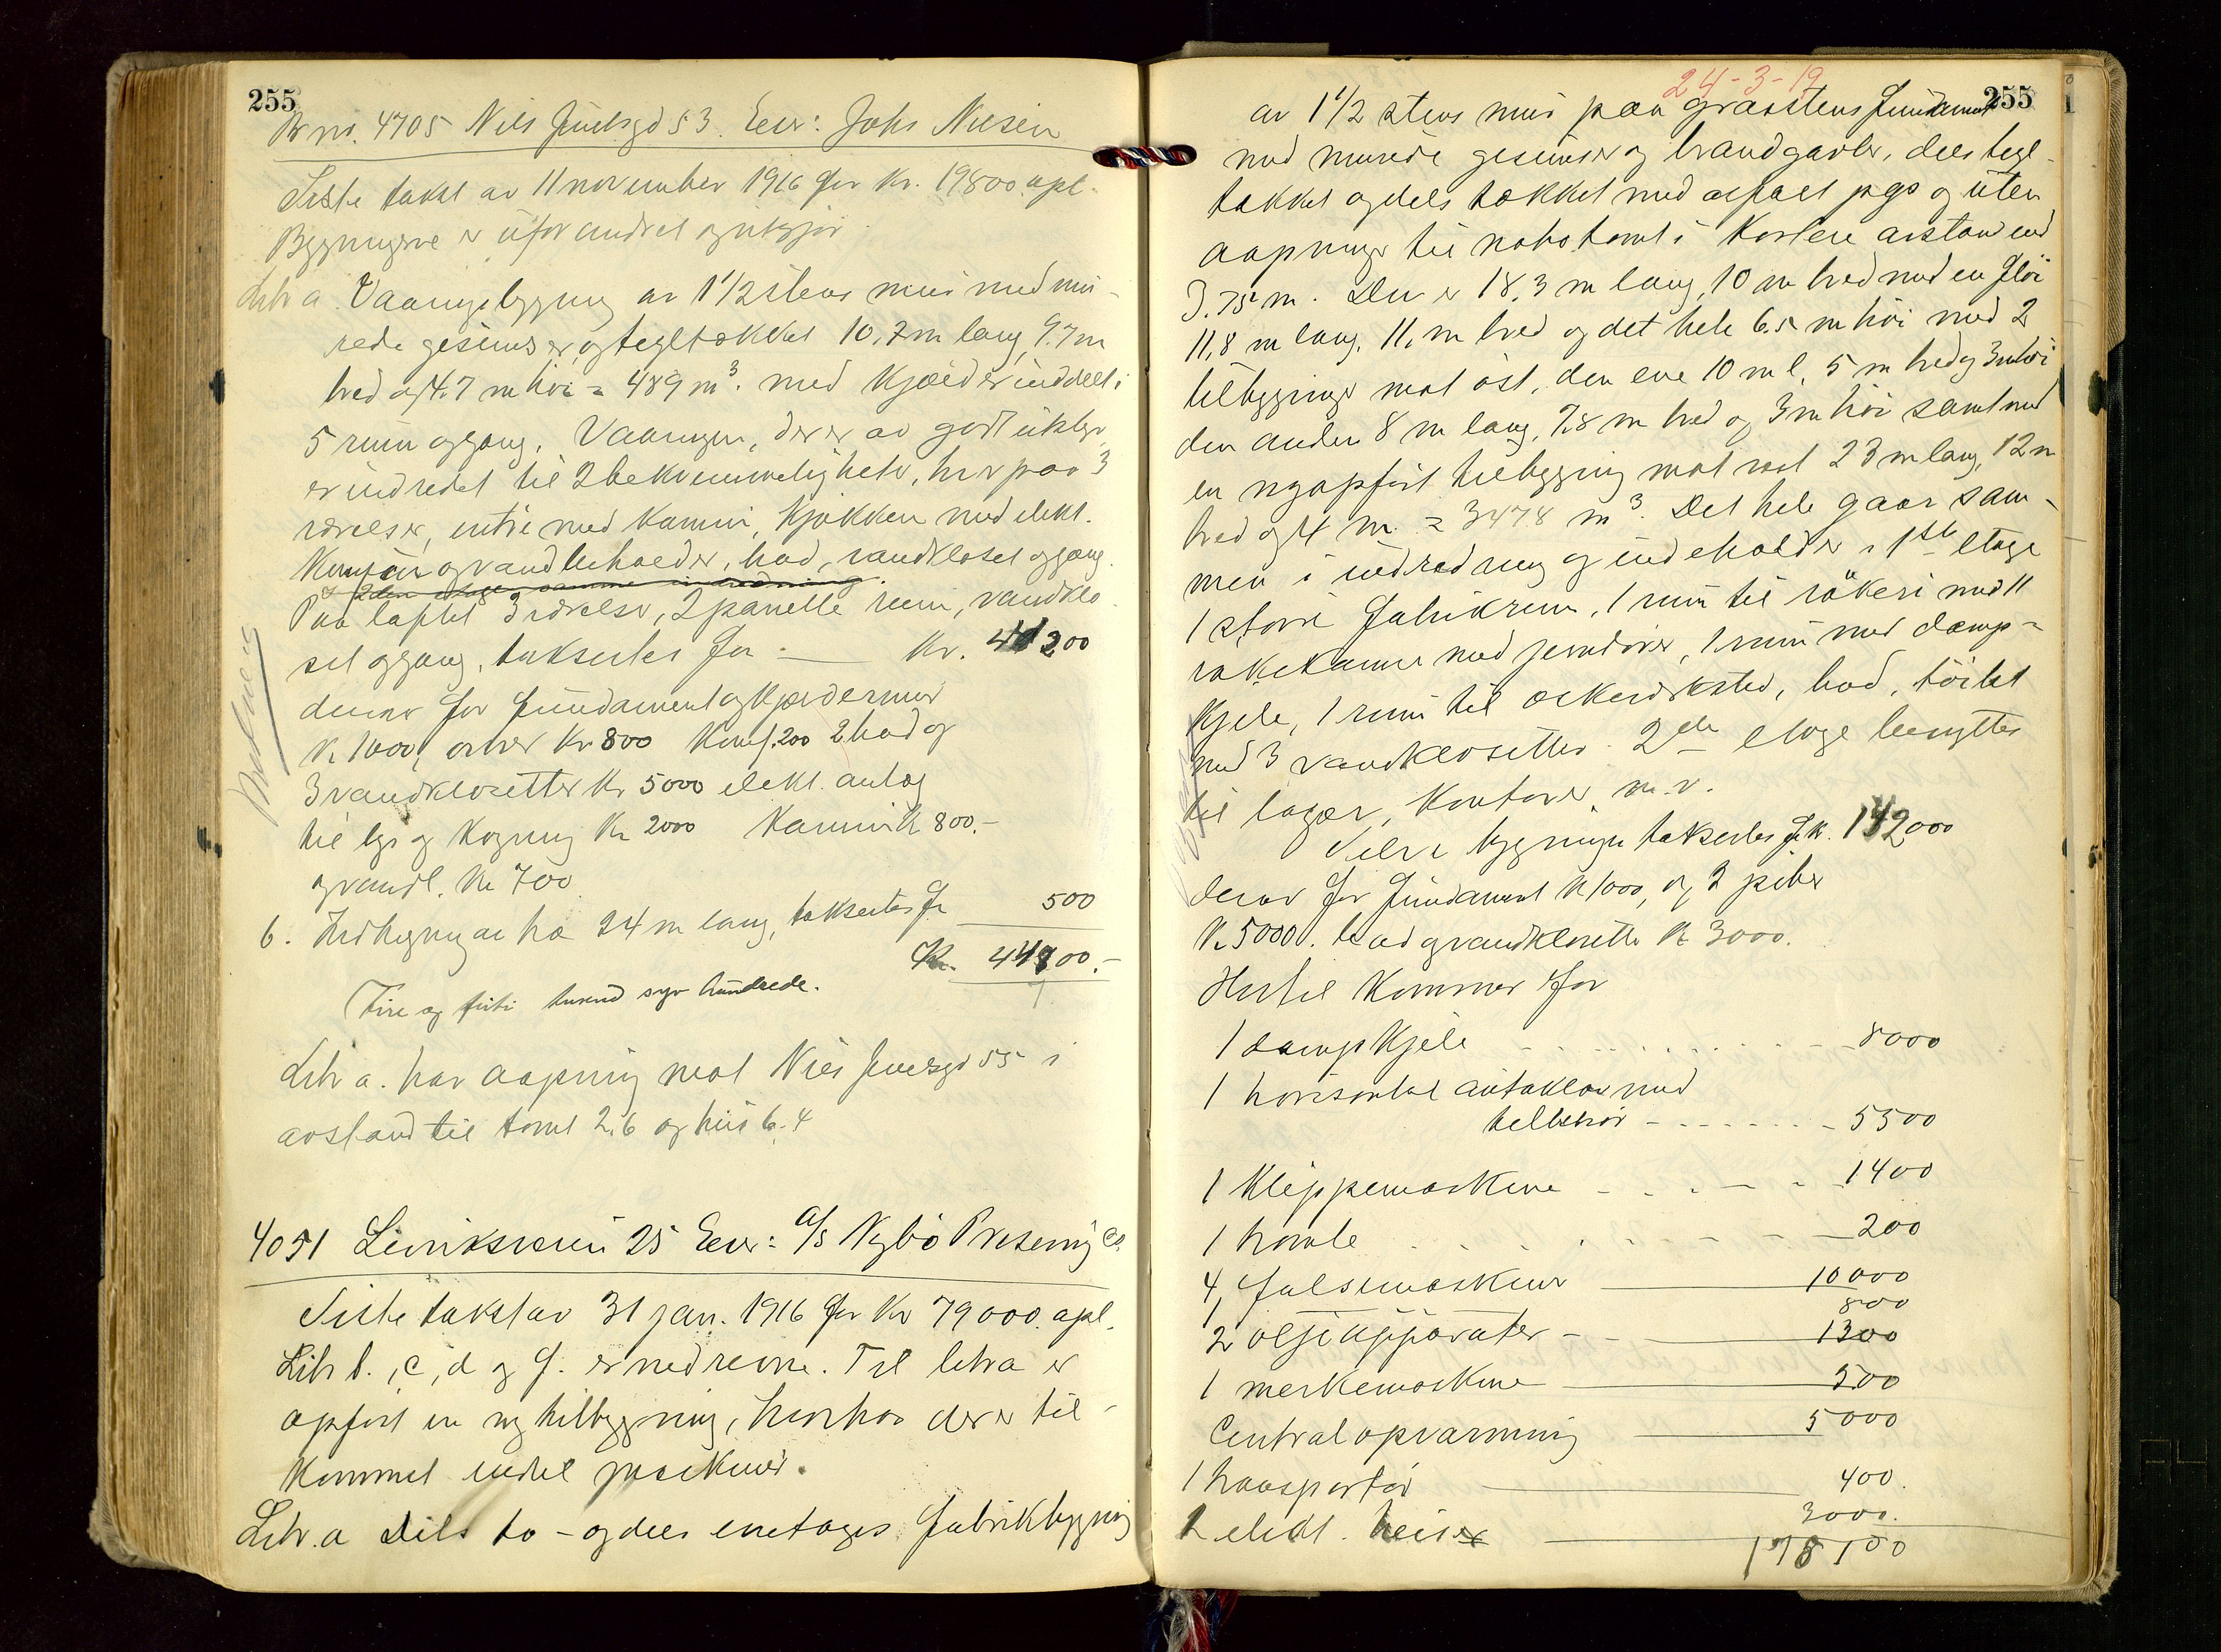 255
Br no. 4705 Nils Juelsgd 53. Eier: Johs Nilsen
Siste takst av 11 november 1916 for kr. 19800 opl.
Bygningene er uforandret og utgjør
Litr a Vaaningsbygning av 1 1/2 stens mur med mu-
rede gesimser og tegltækket 10,7 m lang, 9.7 m
bred og 4.7 m høi = 489 m³. med kjælder inddelt i
5 rum og gang. Vaaningen, der er av godt utstyr,
er indredet til 2 bekvemmeligheter, hvorav 3
værelser, entre med kamin, kjøkken med elekt.
Komfur og vandbeholder, bad, vandkloset og gang.
I 2den etage samme indredning.
Paa loftet 3 værelser, 2 panelte rum, vandklo-
set og gang, takseres for — Kr. 44200
derav for fundament og kjældermur
Kr 1000, ovner Kr 800 Komf. 200 2 bad og
3 vandklosetter Kr 5000 elekt. anlæg
til lys og kogning Kr 2000 Kamin Kr 800.-
og vandl. Kr 700
6. Indhegning av træ 24 m lang, takseres for 500
Kr. 44700.-
Fire og firti tusend syv hundrede.
Litr a. har aapning mot Nils Juelsgd 55 i
avstand til tomt 2.6 og hus 6.4
4051 Lervigsveien 25 Eier: A/S Nybø Presenning Co.
Siste takst av 31 jan. 1916 for Kr 79000. opl.
Litr b., c, d og f. er nedrevne. Til litra a er
opført en ny tilbygning, hvorhos der er til-
kommet endel maskiner.
Litr. a Dels to- og dels enetages fabrikbygning
24-3-19
255
av 1 1/2 stens mur paa graastens fundament
med murede gesimser og brandgavler, dels tegl-
tækket og dels tækket med asfalt pap og uten
aapninger til nabotomt i kortere avstand end
3.75 m. Den er 18,3 m lang, 10 m bred med en fløi
11,8 m lang, 11, m bred og det hele 6,5 m høi med 2
tilbygninger mot øst, den ene 10 m l, 5 m bred og 3 m høi
den anden 8 m lang, 7,8 m bred og 3 m høi samt med
en nyopført tilbygning mot vest 23 m lang, 12 m
bred og 4 m = 3478 m³. Det hele gaar sam-
men i indredning og indeholder i 1ste etage
1 større fabrikrum, 1 rum til røkeri med 11
røkekamre med jerndører, 1 rum med damp-
kjele, 1 rum til verksted, bad, toilet
med 3 vandklosetter. 2den etage benyttes
til lager, kontorer, m.v.
Selve bygningen takseres f. k. 142000
derav for fundament Kr 1000, og 2 piber
Kr 5000. bad og vandklosetter Kr 3000.
Hertil kommer for
1 dampkjele - - - - - 8000
1 horisontal autoklav med
tilbehør - - - - - 5500
1 Klippemaskine - - - - 1400
1 - - - - 200
4 falsemaskiner — 10000
800
2 oljeapparater — 1300
1 merkemaskine — 500
Centralopvarmning — 5000
1 transportør — 400.
1 elekt. heiser — 3000.
178100